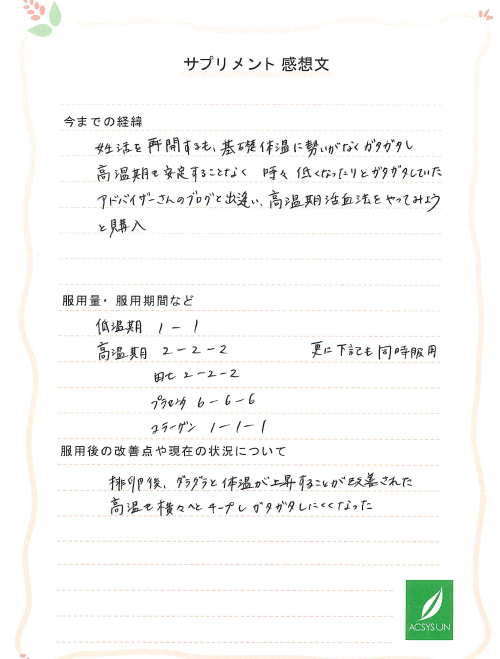 サプリメント 感想文
今までの経緯
妊活を再開するも、基礎体温に勢いがなくガタガタし
高温期も安定することなく 時々 低くなったりとガタガタしていた
アドバイザーさんのブログと出逢い、高温期活血法をやってみよう
と購入
服用量・服用期間など
低温期 1-1
高温期 2-2-2 更に下記も同時服用
田七 2-2-2
プラセンタ 6-6-6
コラーゲン 1-1-1
服用後の改善点や現在の状況について
排卵後、ダラダラと体温が上昇することが改善された
高温も キープし ガタガタしにくくなった
ACSYSUN